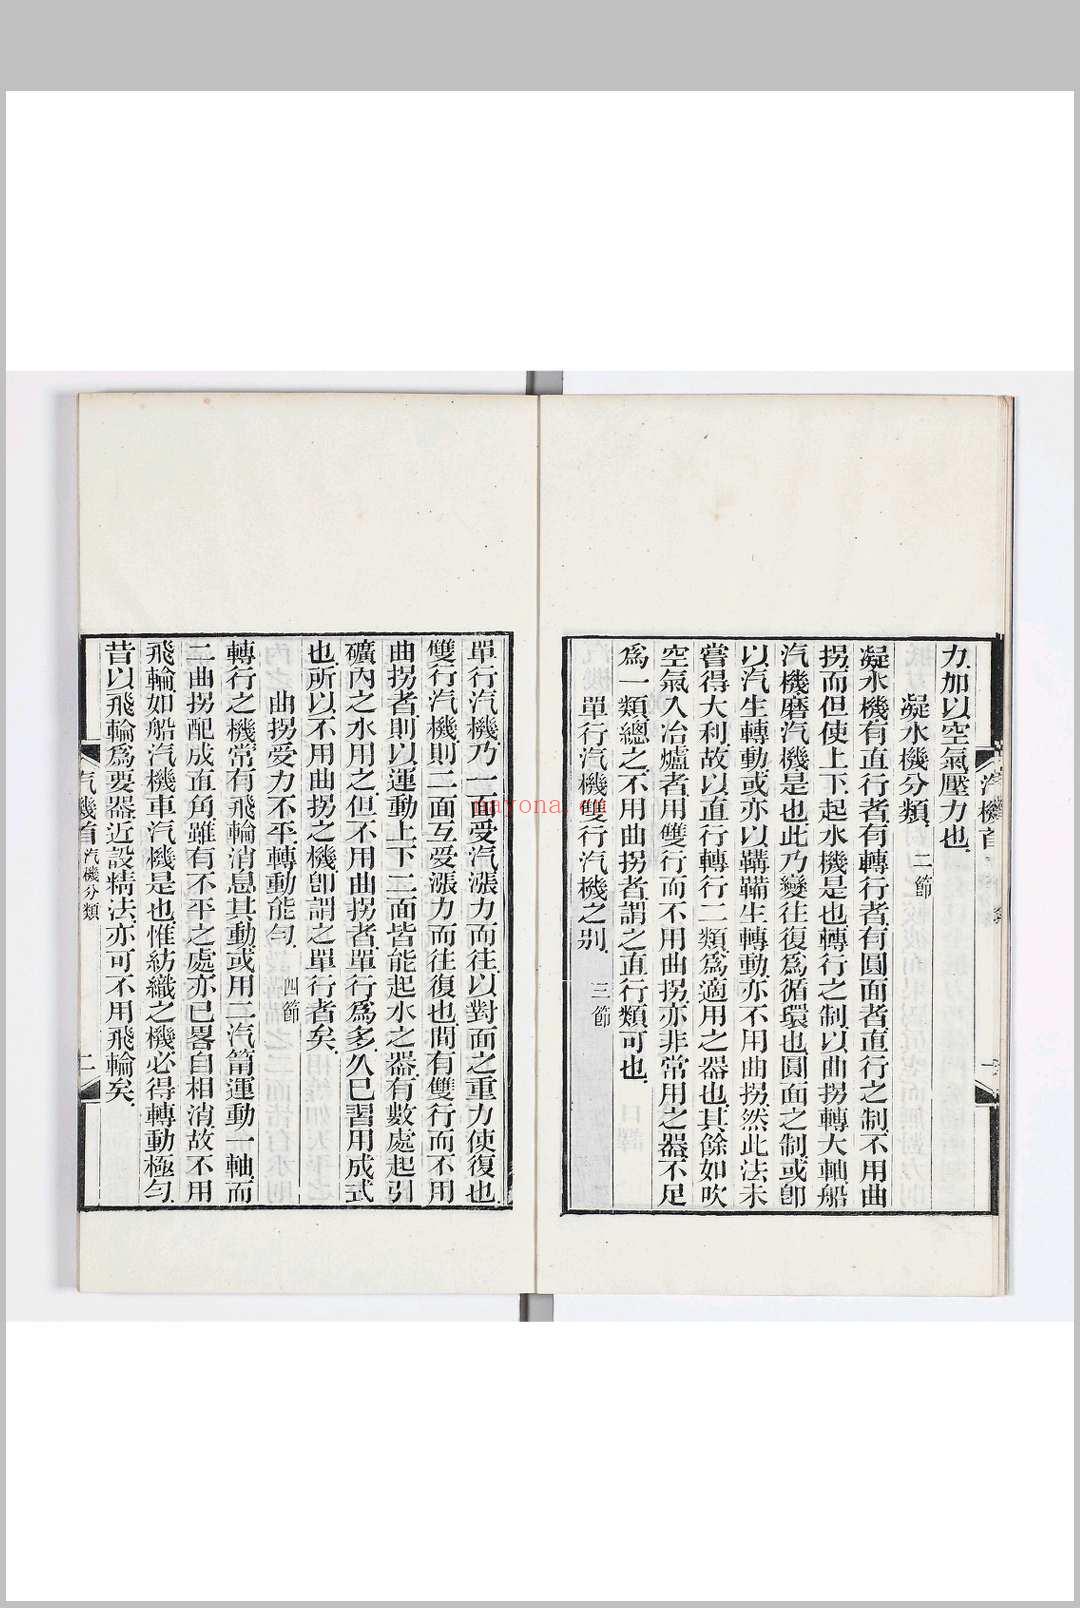 力加以空氣壓力也
凝水機分類 二節
凝水機有直行者有轉行者有圓面者直行之制不用曲
拐而但使上下起水機是也轉行之制以曲拐轉大軸船
汽機磨汽機是也此乃變往復爲循環也圓面之制或卽
以汽生轉動或亦以鞲鞴生轉動亦不用曲拐然此法未
嘗得大利故以直行轉行二類爲適用之器也其餘如吹
空氣入冶爐者用雙行而不用曲拐亦非常用之器不足
爲一類總之不用曲拐者謂之直行類可也
單行汽機雙行汽機之別 三節
單行汽機乃一面受汽漲力而往以對面之重力使復也
雙行汽機則二面互受漲力而往復也間有雙行而不用
曲拐者則以運動上下二面皆能起水之器有數處起引
礦內之水用之但不用曲拐者單行爲多久已習用成式
也所以不用曲拐之機卽謂之單行者矣
曲拐受力不平轉動能勻 四節
轉行之機常有飛輪消息其動或用二汽筩運動一軸而
二曲拐配成直角雖有不平之處亦已畧自相消故不用
飛輪如船汽機車汽機是也惟紡織之機必得轉動極勻
昔以飛輪爲要器近設精法亦可不用飛輪矣
汽機首 汽機分類
二
mayona.cn